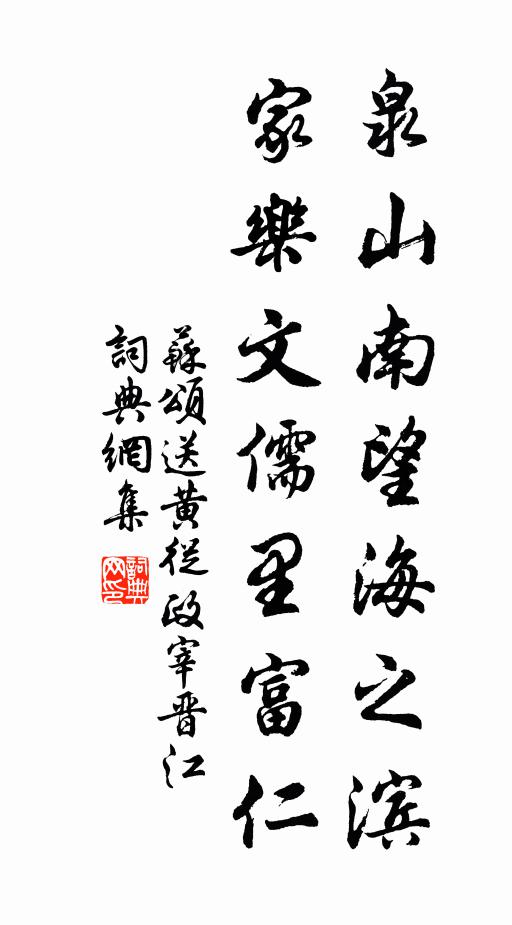 泉山南望海之滨
家樂文儒里富仁
蘇頌送黄從政宰晋江
詞典網集
詞典網印